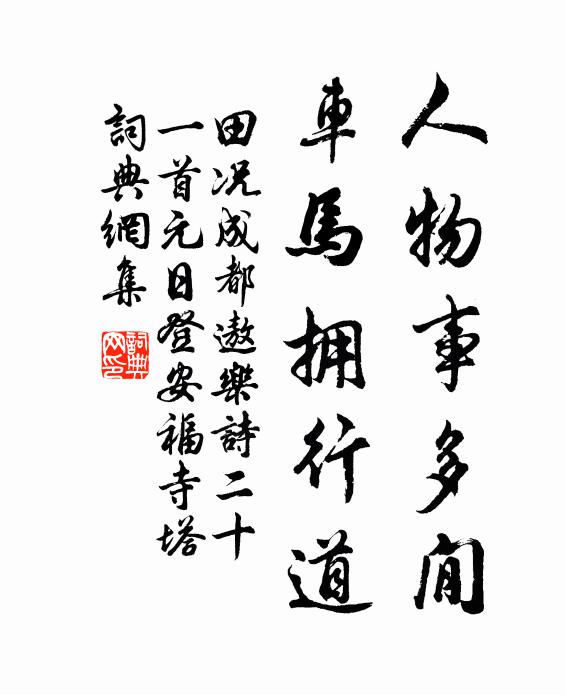 人物事多閒
車馬拥行道
田况成都遨樂詩二十
一首元日登安福寺塔
詞典網集
詞典
网印